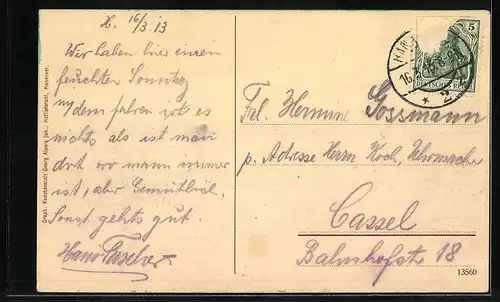 H. 16/3.13
Wir haben hier einen
feuchten Sonntag
m/dem fahren ist es
nichts als ist man
dort wo mann immer
ist, aber Gemütlich.
Sonst gehts gut.
Hans
Graph. Kunstanstalt Georg Alpers jun., Hoflieferant, Hannover.
5
DEUTSCHES REICH
HANN
16.3.13
* 2
Frl. Hermine Gossmann
p. Adresse Herrn Koch, Uhrmacher
Cassel
Bahnhofstr 18
13560